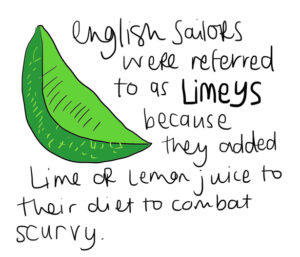 English Sailors
were referred
to as Limeys
because
they added
Lime or Lemon juice to
their diet to combat
scurvy.